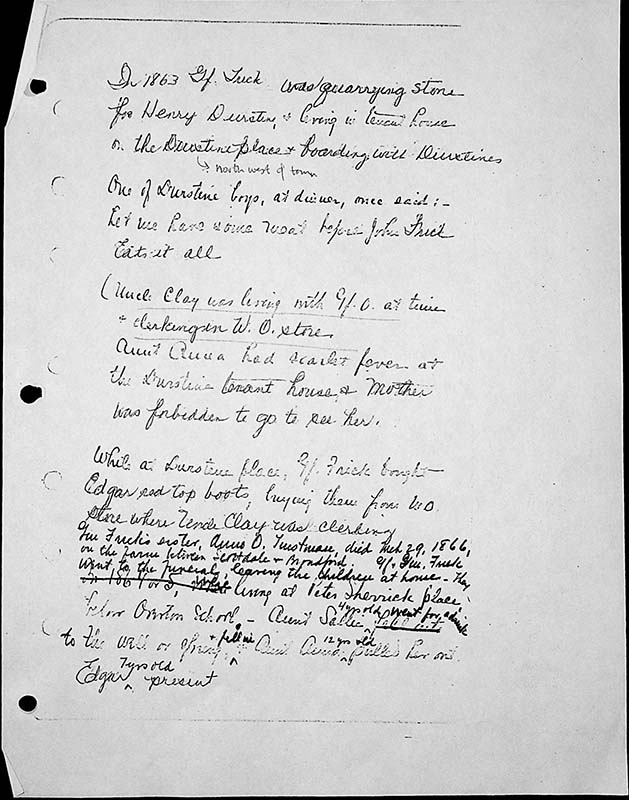 In 1863 Gf. Frick was quarrying stone
for Henry Durstine, & living in tenant house
on the Durstine place & boarding with Durstines
north west of town
One of Durstine boys, at dinner, once said: -
Let me have some meat before John Frick
Eats it all
(Uncle Clay was living with Gf. O. at time
& clerking in W. O. store.
Aunt Anna had scarlet fever at
the Durstine tenant house, & Mother
was forbidden to go to see her.
While at Durstine place, Gf. Frick bought
Edgar red top boots, buying them from W.O.
store where Uncle Clay was clerking
Gm. Frick's sister, Anna O. Tinstman, died Mch 29, 1866,
on the farm between Scottdale & Bradford. Gf. & Gm. Frick
went to the funeral, leaving the children at home - They
In 1864 or 5, living at Peter Sherrick place
below Overton School. - Aunt Sallie 4 yrs old went for a drink
to the well or spring, & fell in & Aunt Anna 12 yrs old pulled her out.
Edgar 7 yrs old present